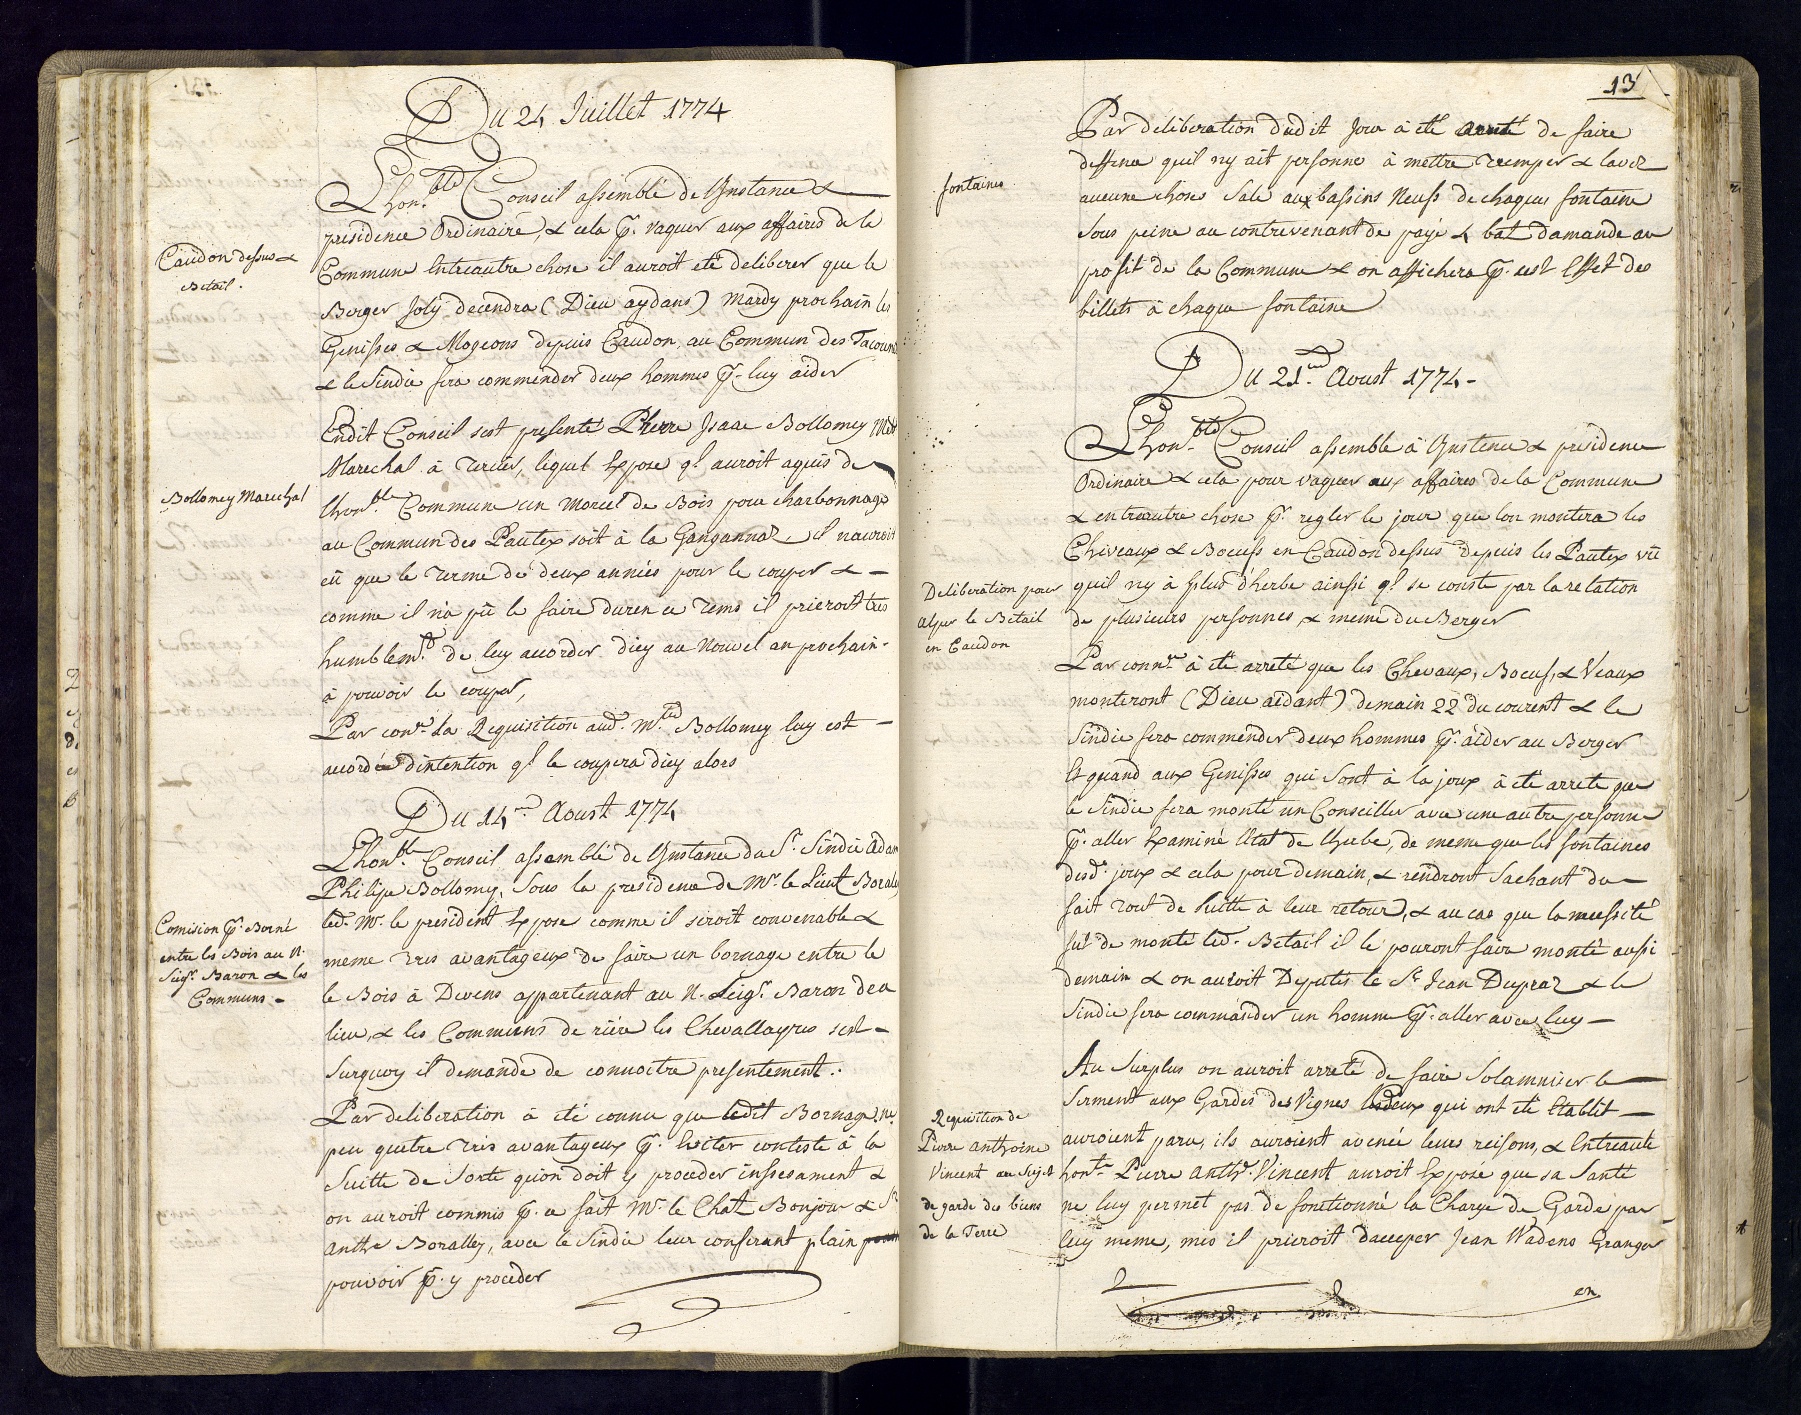 Du 24 Juillet 1774
Lhon.ble Conseil assemblé de L'Instance &
presidence Ordinaire, & cela p.r vaquer aux affaires de le
Caudon dessus &
Betail.
Commune Entreautre chose il auroit eté deliberer que le
Berger Joly decendra (Dieu aydans) Mardy prochain les
Genisses & Mogeons depuis Caudon, au Commun des
& le Sindic fera commender deux hommes p.r luy aider
Endit Conseil sest presenté Pierre Isaac Bollomey
Marechal à Tercier, lequel Expose q.l auroit aquis de
Bollomey Marechal
lhon.ble Commune un Morcel de Bois pour charbonnage
au Commun des Pautex soit à la il nauroit
eû que le Terme de deux années pour le couper &
comme il n'a pû le faire duren ce Tems il prieroit tres
humblem.t de luy accorder dicy au Nouvel an prochain
à pouvoir le couper,
Par con.ce la Requisition aud. M.e Bollomey luy est
accordée d'intention q.l le coupera dicy alors
Du 14.me Aoust 1774
Lhon.ble Conseil assemblé de L'Instance du S.r Sindic Adam
Philipe Bollomey, Sous la presidence de M.r le Lieut Boraley
led. M.r le president Expose comme il seroit convenable &
Comision p.r Borné
entre les Bois au N.
Seig.r Baron & les
Communs
meme tres avantageux de faire un bornage entre le
le Bois à Devens appartenant au N. Seig.r Baron de ce
lieu, & les Communs de riére les Chevallayres sest
Surquoy il demande de connoitre presentement.
Par deliberation à eté connu que ledit Bornage ne
peu quetre tres avantageux p.r Eviter conteste à la
Suitte de Sorte qu'on doit y proceder &
on auroit commis p.r ce fait M.r le Chat. Bonjour & S.r
Anth.e Boralley, avec le Sindic leur conferant plain
pouvoir p.r y proceder
13
Par deliberation dudit Jour à eté arreté de faire
deffence quil ny ait personne à mettre tremper & laver
fontaines
aucune choses Sale aux bassins Neufs de chaques fontaine
Sous peine au contrevenant de payé 4 bat. Damande au
profit de la Commune & on affichera p.r cest Effet des
billets à chaque fontaine
Du 21.me Aoust 1774
Lhon.ble Conseil assemblé à L'Instence & presidence
Ordinaire & cela pour vaquer aux affaires de la Commune
& entreautre chose p.r regler le jour que lon montera les
Chevaux & Boeufs en Caudon dessus depuis les Pautex vû
Deliberation pour
alper le Betail
en Caudon
quil ny à plus d'herbe ainssi q.l se conste par la relation
de plusieurs personnes & meme du Berger
Par conn.ce à eté arreté que les Chevaux, Boeufs, & Veaux
monteront (Dieu aidant) demain 22 du courent & le
Sindic fera commender deux hommes p.r aider au Berger
Et quand aux Genisses qui Sont à la joux à eté arreté que
le Sindic fera monté un Conseiller avec une autre personne
p.r aller Examiné l'Etat de l'herbe, de meme que les fontaines
desd.s joux & cela pour demain, & rendront Sachant du
fait tout de suitte à leur retour, & au cas que la necessité
fut de monté led. Betail il le pouront faire monté aussi
demain & on auroit Deputés le S.r Jean Dupraz & le
Sindic fera commander un homme p.r aller avec luy
Au Surplus on auroit arreté de faire Solamniser le
Serment aux Gardes des Vignes lesdeux qui ont eté Etablit
Requisition de
Pierre Anthoine
Vincent au Sujet
de garde des biens
de la Terre
auroient paru, ils auroient avencé leurs reisons, & Entreaute
hon.te Pierre Anth.e Vincent auroit Exposé que sa Santé
ne luy permet pas de fonctionné la Charge de Garde par
luy meme, mes il prieroit d'acceper Jean Wadens Granger
en